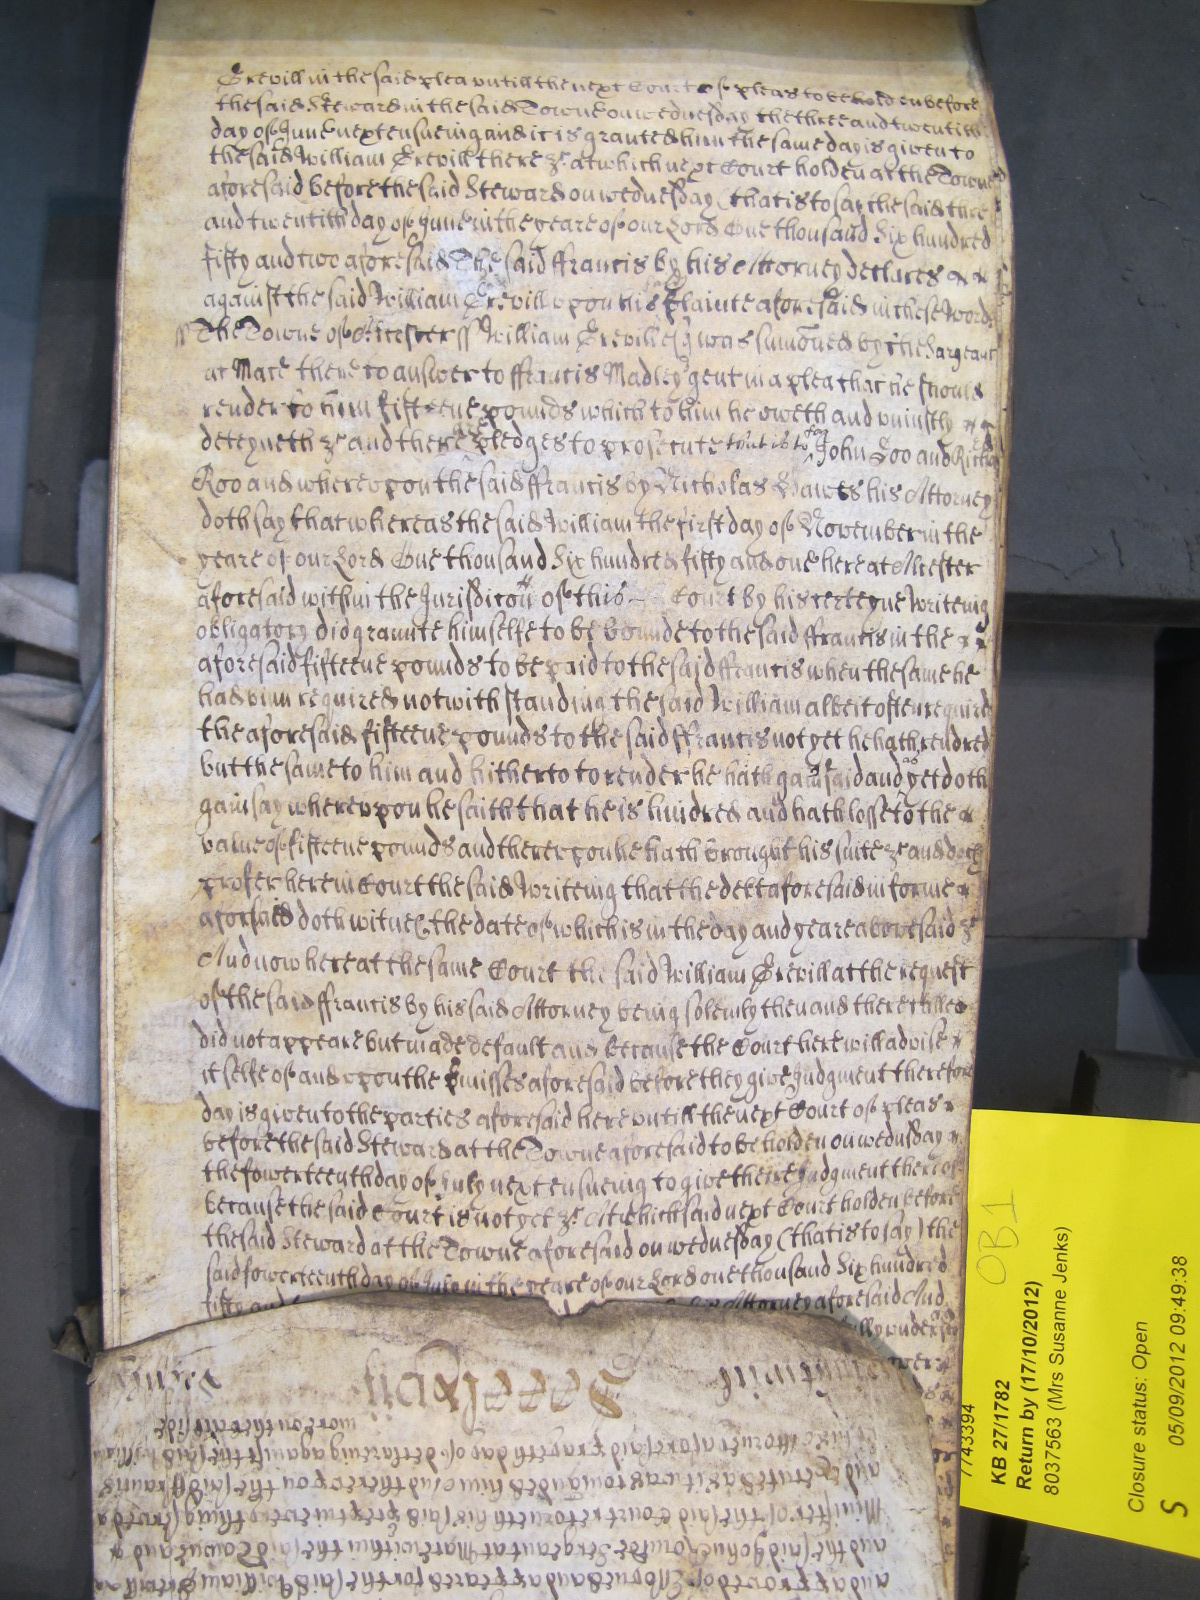 Grevill in the said plea untill the next Court of pleas to be holden before
the said Steward in the said Towne on wednesday the three and twentith
day of June next ensueing and it is granted him the same day is given to
the said William Grevill there &c at which next Court holden at the Towne
aforesaid before the said Steward on wednesday (that is to say the said three
and twentith day of June in the yeare of our Lord One thousand Six hundred
fifty and two aforesaid The said ffrancis by his Attorney declares
against the said William Grevill upon his Plainte aforesaid in these words
ss The Towne of Alcester ss William Grevill esq was sumoned by the Sargeant
at Mace there to answer to ffrancis Madley gent in a plea that he should
render to him fifteene pounds which to him he oweth and uniustly
deteyneth &c and there are pledges to prosecute John Doo and Richard
Roo and whereupon the said ffrancis by Nicholas Hawes his Attorney
doth say that whereas the said William the first day of November in the
yeare of our Lord One thousand Six hundred fifty and one here at Alcester
aforesaid within the Jurisdiccon of this Court by his certeyne writeing
obligatory did graunte himselfe to be bounde to the said ffrancis in the
aforesaid fifteene pounds to be paid to the said ffrancis when the same he
had bin required notwithstanding the said William albeit often required
the aforesaid fifteene pounds to the said ffrancis not yet he hath rendred
but the same to him and hitherto to render he hath gainsaid and as yet doth
gainsay whereupon he saith that he is hindred and hath losse to the
value of fifteene pounds and thereupon he hath brought his suite &c and doth
profer here in Court the said writeing that the debt aforesaid in forme
aforsaid doth witnes the date of which is in the day and yeare abovesaid &c
And now here at the same Court the said William Grevill at the request
of the said ffrancis by his said Attorney being solemly then and there called
did not appeare but made default and because the Court here will advise
it selfe of and upon the pmisses aforesaid before they give Judgment therefore
day is given to the parties aforesaid here untill the next Court of pleas
before the said Steward at the Towne aforesaid to be holden on wednsday
the fowerteenth day of July next ensueing to give theire Judgment thereof
because the said Court is not yet &c At which said next Court holden before
the said Steward at the Towne aforesaid on wednesday (that is to say) the
said fowerteenth day of July in the yeare of our Lord one thousand Six hundred
fifty and Attorney aforesaid And
more on the other side
aforesaid prayeth day of declareing against the said William
and executed as it was comanded him And thereupon the said ffrancis
Minister of the said Court retorneth his said precept in every thing served
and the said John Sergeant at Mace within the said Towne and
and approved of and appeared for the said William Grevill
7743394
KB 27/1782
Return by (17/10/2012)
8037563 (Mrs Susanne Jenks)
Closure status: Open
S 05/09/2012 09:49:38
OB1